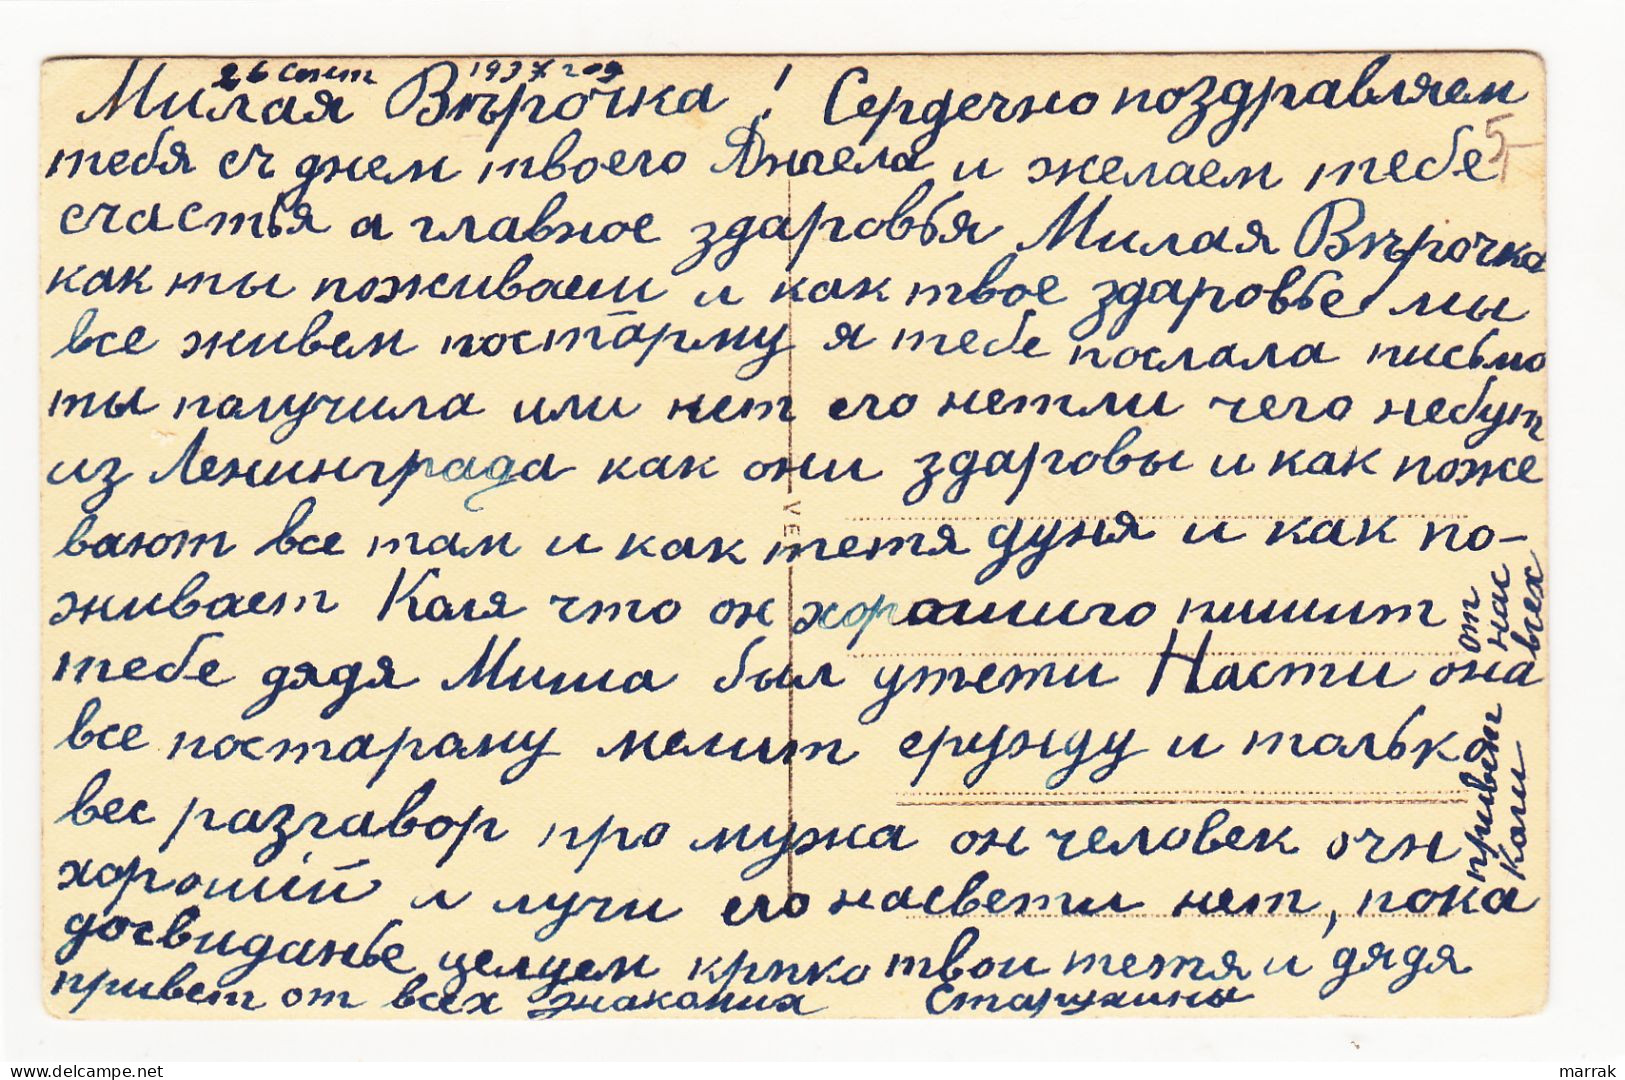 26 сент 1937 год
Милая Вѣрочка! Сердечно поздравляем
тебя съ днем твоего Ангела и желаем тебе
5-
счастья а главное здаровья Милая Вѣрочка
как ты поживаеш и как твое здаровье мы
все живем постарму я тебе послала письмо
ты палучила или нет его нетли чего небут
из Ленинграда как они здаровы и как поже
вают все там и как тетя дуня и как по-
живает Каля что он хорошиго пишит
тебе дядя Миша был утети Насти она
все постараму мелит ерунду и талько
вес разгавор про мужа он человек очн
хороший и лучи его насвети нет, пока
досвиданье целуем крпко твои тетя и дядя
привет от всех знакомих Старухины
привет от
Коли нас
всех
VE
marrak